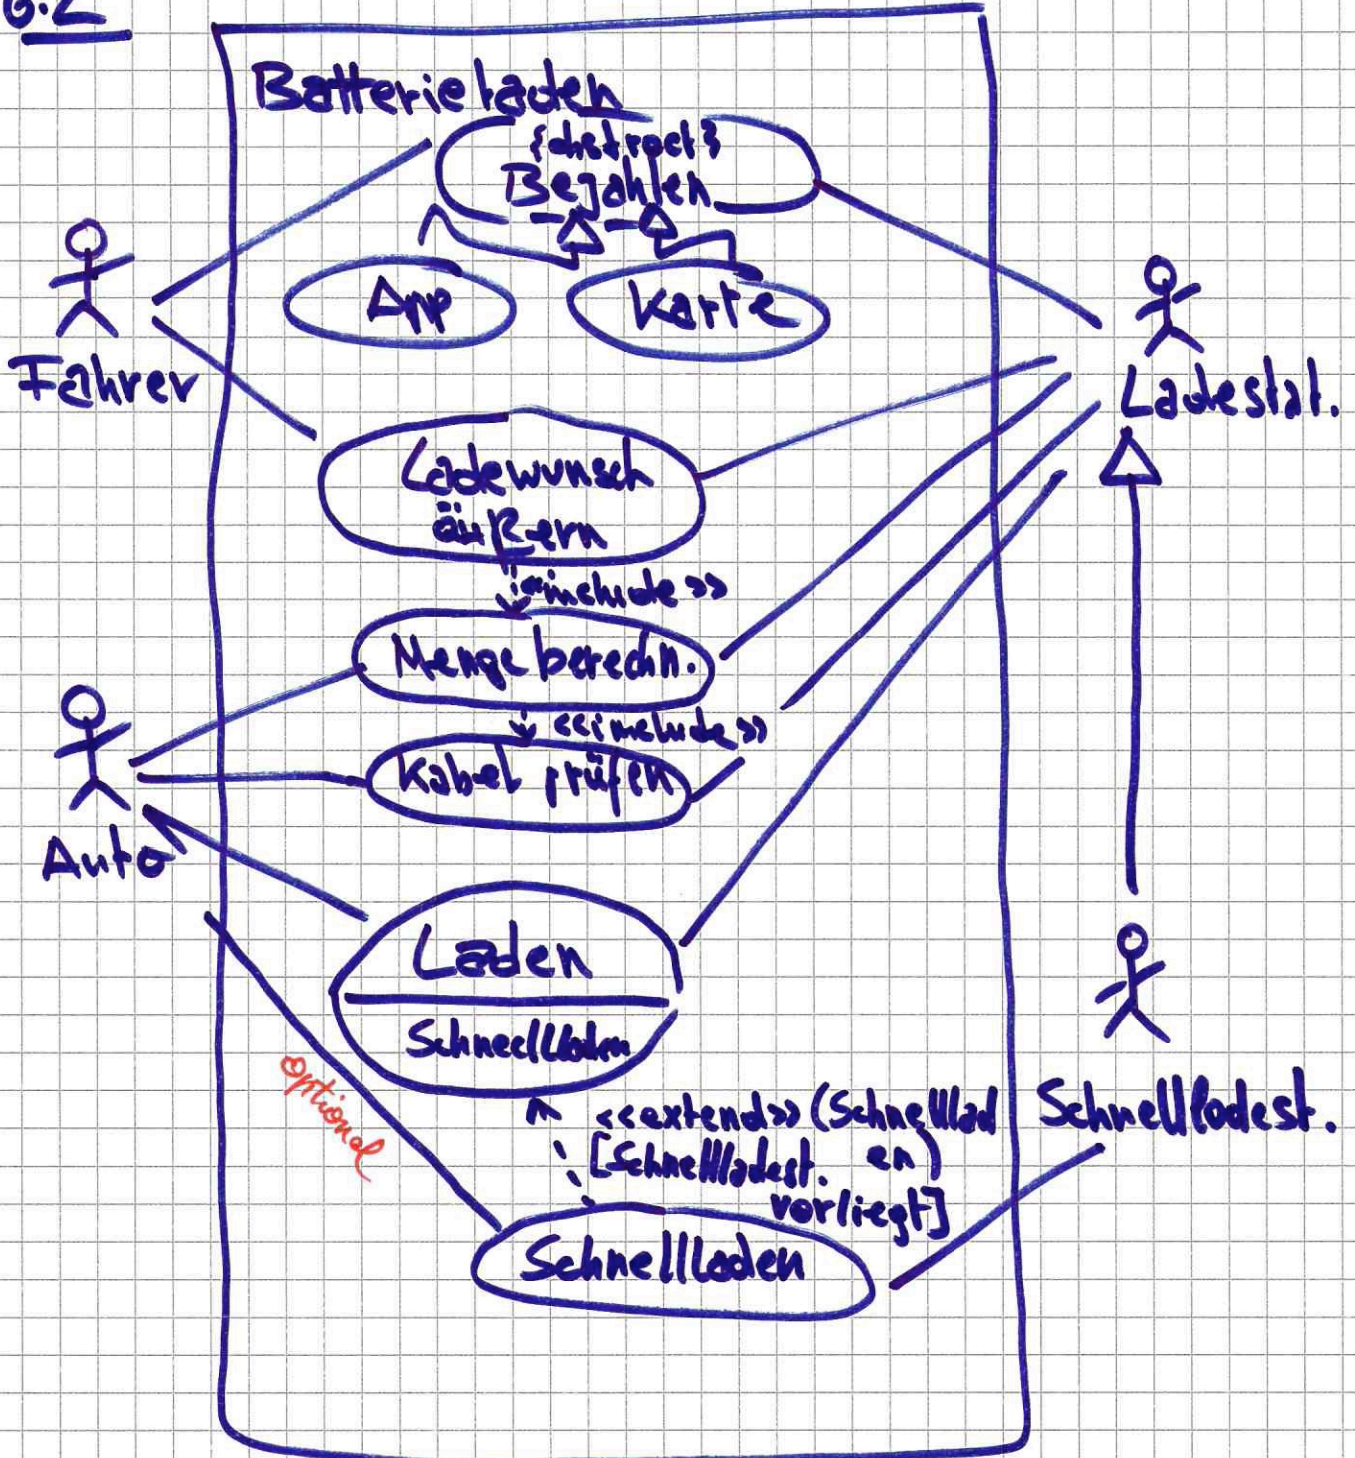 6.2
Batterie laden
{abstract}
Bezahlen
App
Karte
Fahrer
Ladestat.
Ladewunsch
äußern
<<include>>
Menge berechn.
<<include>>
Kabel prüfen
Auto
Laden
Schnellladen
optional
<<extend>> (Schnelllad
[Schnellladest. en)
vorliegt]
Schnellladest.
Schnellladen